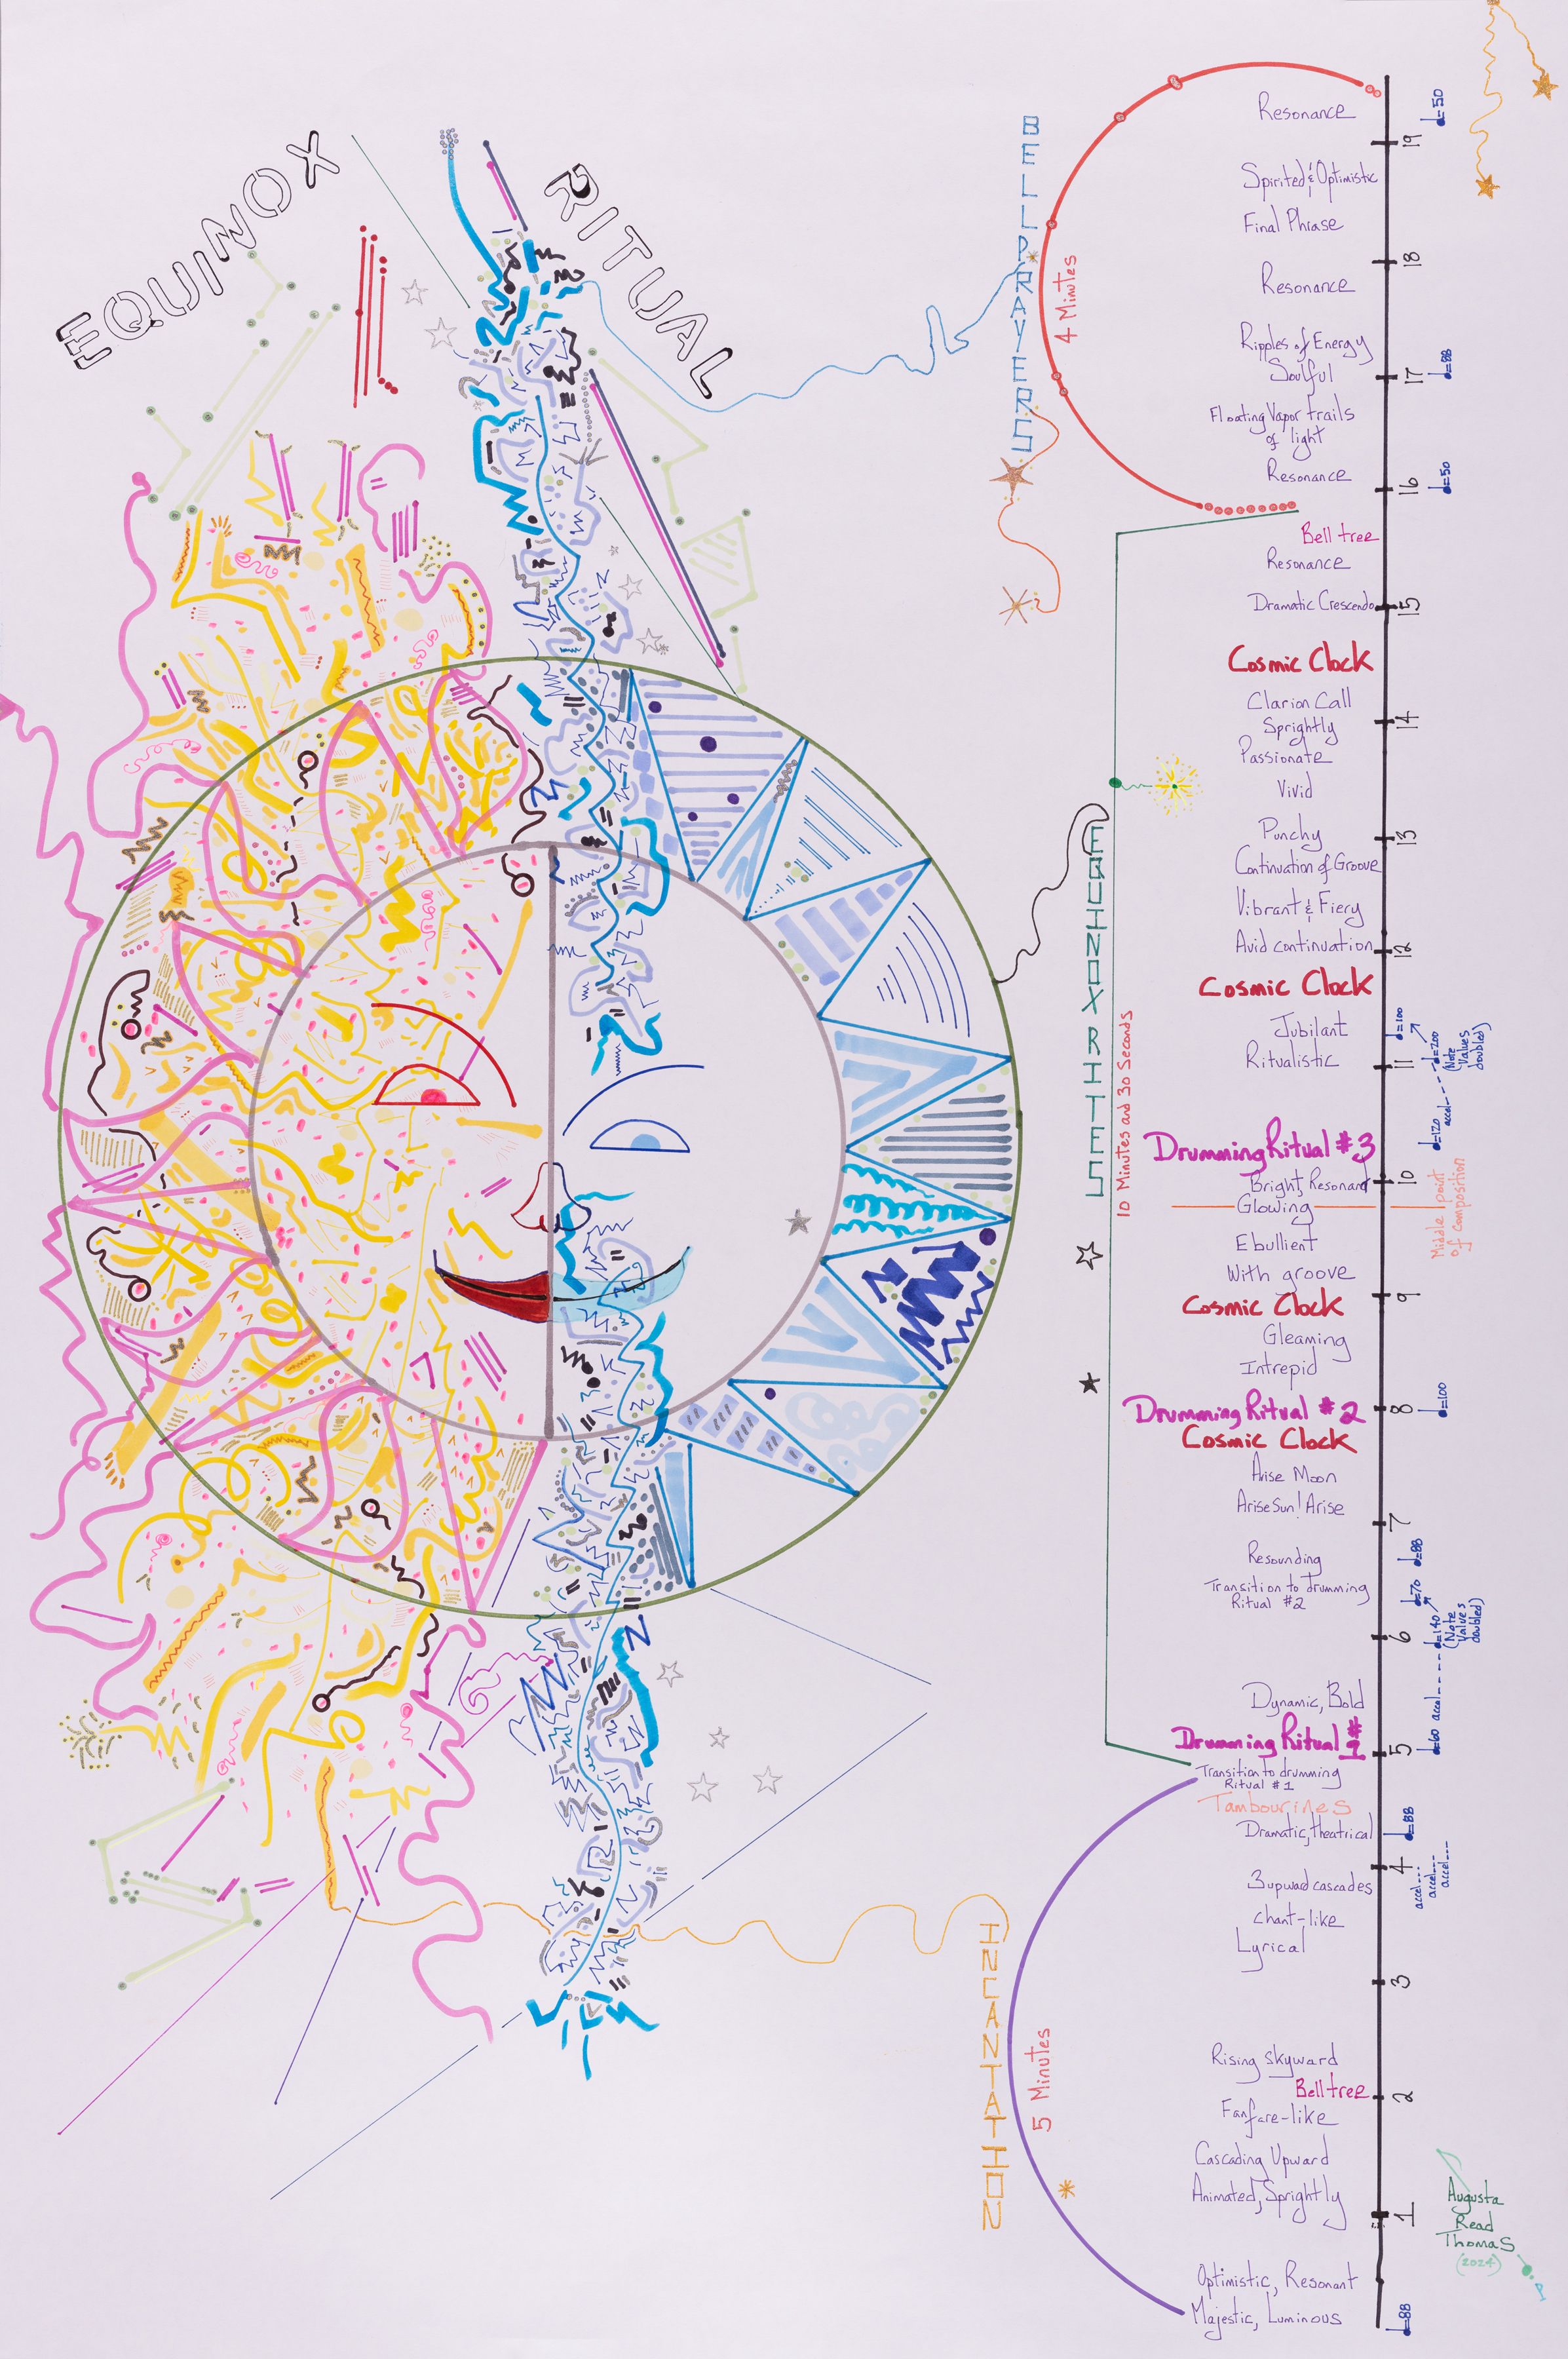 EQUINOX
RITUAL
BELL PRAYERS
4 Minutes
Resonance
Spirited & Optimistic
Final Phrase
Resonance
Ripples of Energy
Soulful
Floating Vapor trails
of light
Resonance
Bell tree
Resonance
Dramatic Crescendo
Cosmic Clock
Clarion Call
Sprightly
Passionate
Vivid
Punchy
Continuation of Groove
Vibrant & Fiery
Avid continuation
Cosmic Clock
Jubilant
Ritualistic
Drumming Ritual #3
Bright, Resonant
Glowing
Ebullient
With groove
Cosmic Clock
Gleaming
Intrepid
Drumming Ritual #2
Cosmic Clock
Arise Moon
Arise Sun! Arise
Resounding
Transition to drumming
Ritual #2
Dynamic, Bold
Drumming Ritual #1
Transition to drumming
Ritual #1
Tambourines
Dramatic, theatrical
3 upward cascades
Chant-like
Lyrical
Rising skyward
Bell tree
Fanfare-like
Cascading Upward
Animated, Sprightly
Optimistic, Resonant
Majestic, Luminous
EQUINOX RITES
10 Minutes and 30 Seconds
INCANTATION
5 Minutes
19
18
17
16
15
14
13
12
11
10
9
8
7
6
5
4
3
2
1
♩=50
♩=88
♩=50
♩=100
♩=200
(Note
Values
doubled)
accel---
♩=120
Middle point
of Composition
♩=100
♩=88
♩=70
♩=140
(Note
Values
doubled)
accel----
♩=60
♩=88
accel---
accel---
accel---
♩=88
Augusta
Read
Thomas
(2024)